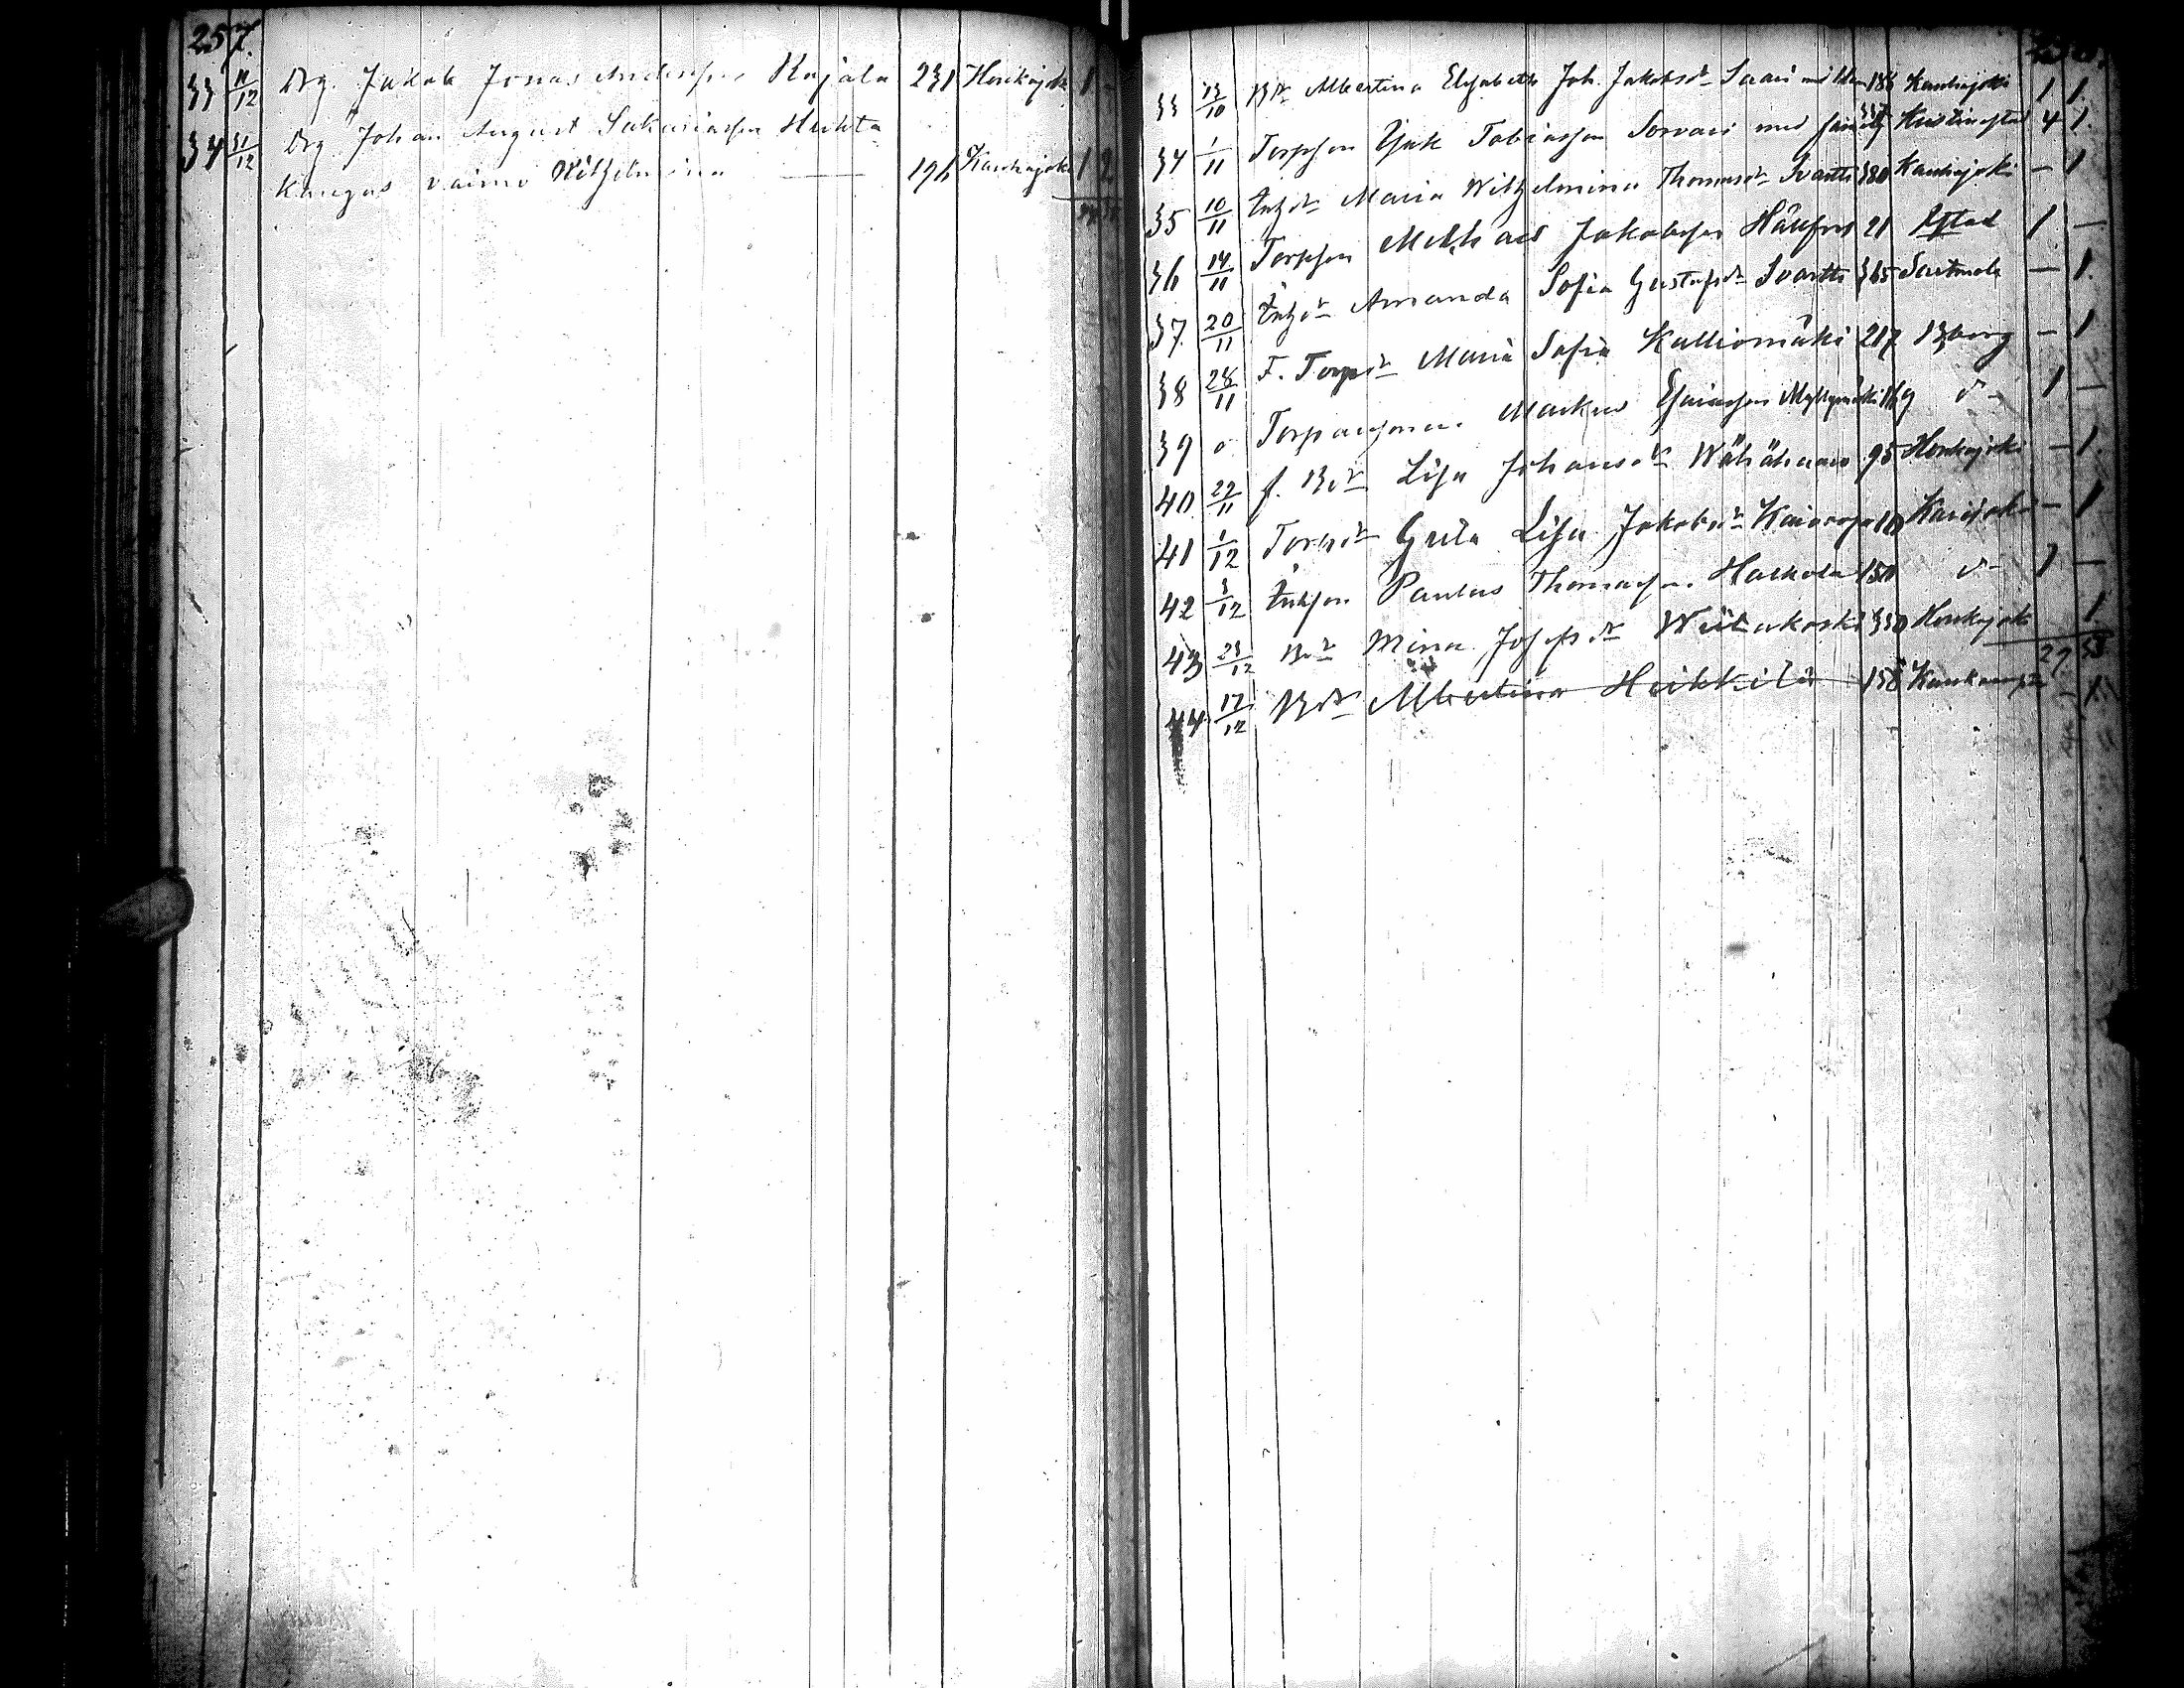 257.
33 11/12 Drg. Jakob Jonas Andersson Kujala 231 Honkajoki 1 -
34 31/12 Drg Johan August Sakariasson Huhta
Kangas vaimo Wilhelmina 196 Kauhajoki 1 2
33 13/10 Bdr Albertina Elisabeth Joh. Jakobsdr Saari 186 Kauhajoki 1 1
34 1/11 Torpson Isak Tobiasson Sorvari med familj Kristinestad 4 1.
35 10/11 Inhdr Maria Wilhelmina Thomasdr Svartti 380 Kauhajoki - 1
36 14/11 Torpson Mikhael Jakobsson 21 1 -
37 20/11 Inhdr Amanda Sofia Gustafsdr Svartti 365 Sastmola - 1.
38 28/11 F. Torpdr Maria Sofia Kalliomäki 217 Bborg - 1
39 Markus Esaiasson Myllymäki 169 1 -
40 29/11 f. Bdr Lisa Johansdr Wähähaan 95 Honkajoki - 1.
41 1/12 Torpdr Greta Lisa Jakobsdr Karijoki - 1
42 3/12 Inhson Paulus Thomasson Halkola 150 1 -
43 23/12 Bdr Mina Josefsdr Wiitakoski 350 Honkajoki 1
44 17/12 Bdr Albertina Heikkilä 158 - 1